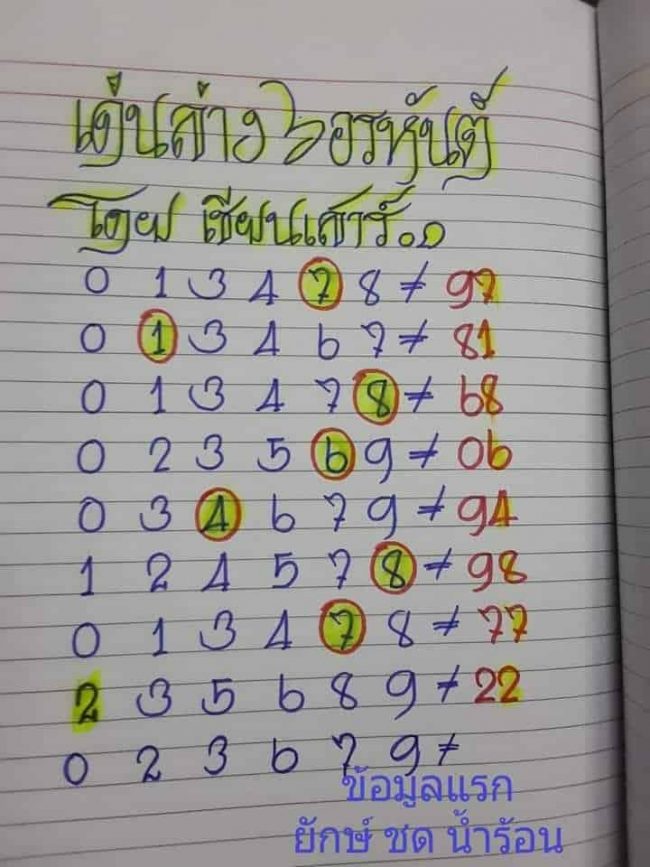 เด่นล่าง 6 อรหันต์
โดย เซียนเสาร์.๑
0 1 3 4 7 8 ≠ 97
0 1 3 4 6 7 ≠ 81
0 1 3 4 7 8 ≠ 68
0 2 3 5 6 9 ≠ 06
0 3 4 6 7 9 ≠ 94
1 2 4 5 7 8 ≠ 98
0 1 3 4 7 8 ≠ 77
2 3 5 6 8 9 ≠ 22
0 2 3 6 7 9 ≠
ข้อมูลแรก
ยักษ์ ชด น้ำร้อน